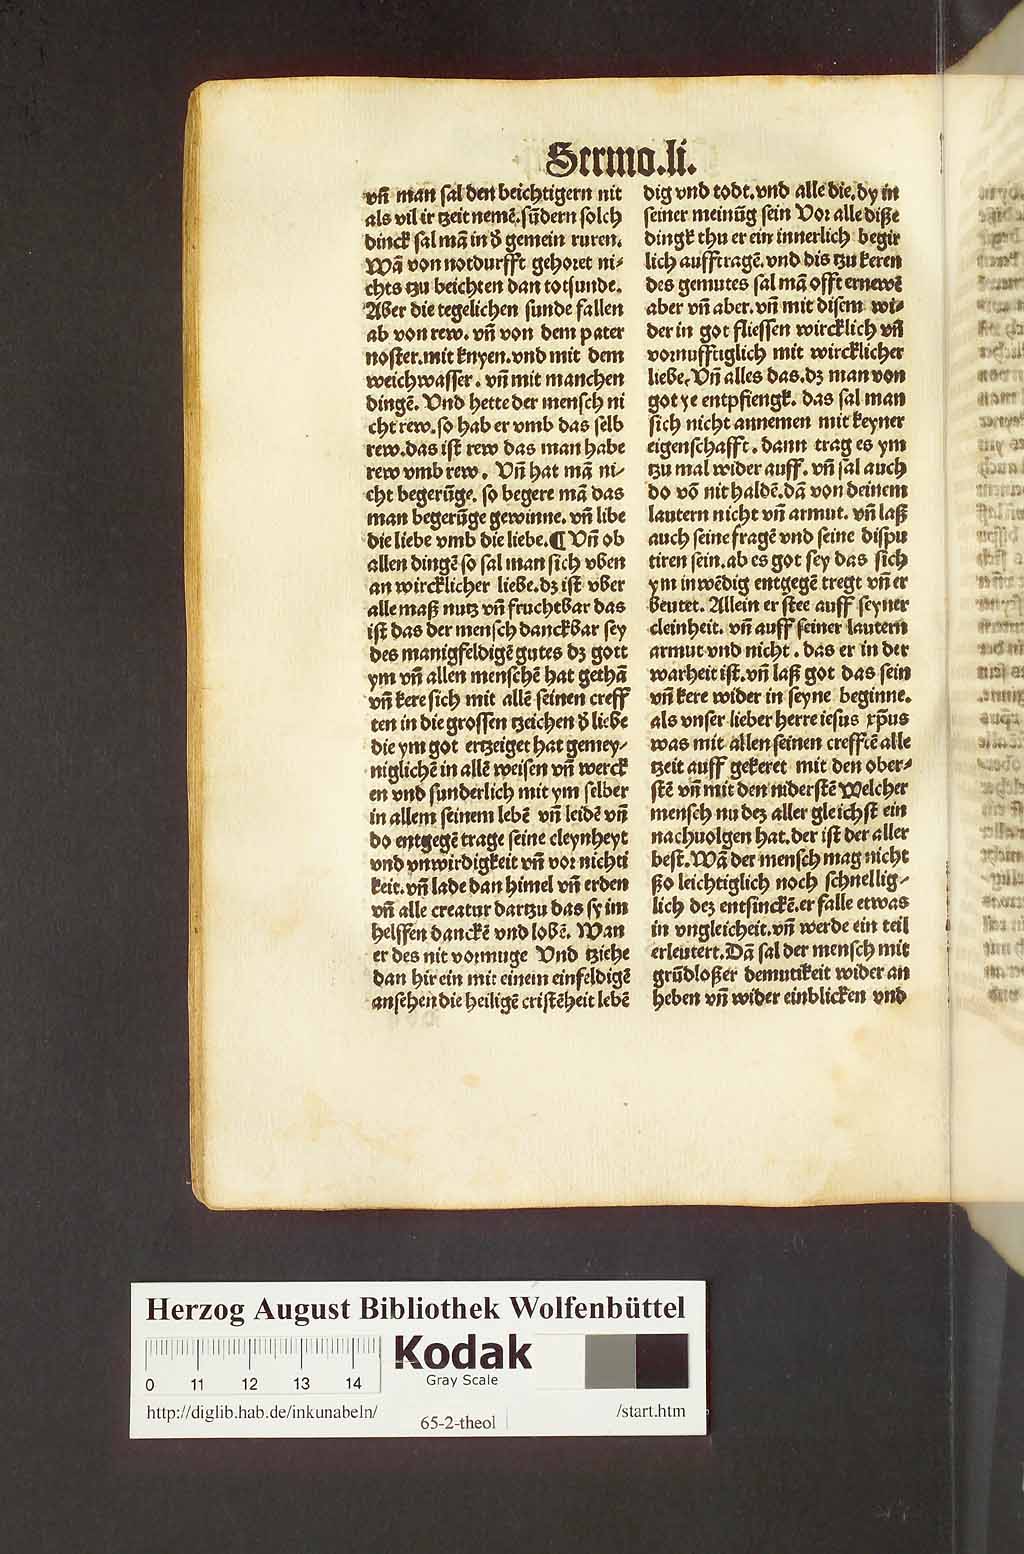 Sermo.li.
vn̄ man sal den beichtigern nit
als vil ir tzeit nemē.sūdern solch
dinck sal mā in d̓ gemein ruren.
Wā von notdurfft gehoret ni-
chts tzu beichten dan totsunde.
Aber die tegelichen sunde fallen
ab von rew. vn̄ von dem pater
noster.mit knyen.vnd mit dem
weichwasser. vn̄ mit manchen
dingē. Vnd hette der mensch ni
cht rew.so hab er vmb das selb
rew.das ist rew das man habe
rew vmb rew. Vn̄ hat mā ni-
cht begerūge. so begere mā das
man begerūge gewinne. vn̄ libe
die liebe vmb die liebe.¶ Vn̄ ob
allen dingē so sal man sich vben
an wircklicher liebe.dz ist vber
alle maß nutz vn̄ fruchtbar das
ist das der mensch danckbar sey
des manigfeldigē gutes dz gott
ym vn̄ allen menschē hat gethā
vn̄ kere sich mit allē seinen creff
ten in die grossen tzeichen d̓ liebe
die ym got ertzeiget hat gemey-
niglichē in allē weisen vn̄ werck
en vnd sunderlich mit ym selber
in allem seinem lebē vn̄ leidē vn̄
do entgegē trage seine cleynheyt
vnd vnwirdigkeit vn̄ vor nichti
keit.vn̄ lade dan himel vn̄ erden
vn̄ alle creatur dartzu das sy im
helffen danckē vnd lobē. Wan
er des nit vormuge Vnd tziehe
dan hir ein mit einem einfeldigē
ansehen die heiligē cristēheit lebē
dig vnd todt.vnd alle die.dy in
seiner meinūg sein Vor alle diße
dingk thu er ein innerlich begir
lich aufftragē.vnd dis tzu keren
des gemutes sal mā offt ernewē
aber vn̄ aber.vn̄ mit disem wi-
der in got fliessen wircklich vn̄
vornufftiglich mit wircklicher
liebe. Vn̄ alles das.dz man von
got ye entpfiengk. das sal man
sich nicht annemen mit keyner
eigenschafft. dann trag es ym
tzu mal wider auff. vn̄ sal auch
do vō nit haldē.dā von deinem
lautern nicht vn̄ armut. vn̄ laß
auch seine fragē vnd seine dispu
tiren sein.ab es got sey das sich
ym inwēdig entgegē tregt vn̄ er
beutet. Allein er stee auff seyner
cleinheit. vn̄ auff seiner lautern
armut vnd nicht. das er in der
warheit ist.vn̄ laß got das sein
vn̄ kere wider in seyne beginne.
als vnser lieber herre iesus xp̄us
was mit allen seinen crefftē alle
tzeit auff gekeret mit den ober-
stē vn̄ mit den niderstē Welcher
mensch nu dez aller gleichst ein
nachuolgen hat.der ist der aller
best.Wā der mensch mag nicht
ßo leichtiglich noch schnellig-
lich dez entsinckē.er falle etwas
in vngleicheit.vn̄ werde ein teil
erleutert.Dā sal der mensch mit
grūdloßer demutikeit wider an
heben vn̄ wider einblicken vnd
Herzog August Bibliothek Wolfenbüttel
Kodak
Gray Scale
0 11 12 13 14
http://diglib.hab.de/inkunabeln/ 65-2-theol /start.htm